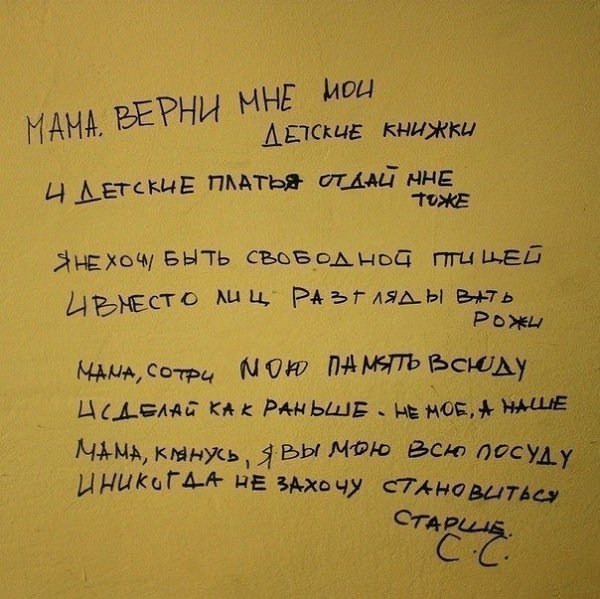 МАМА. ВЕРНИ МНЕ МОИ
ДЕТСКИЕ КНИЖКИ
И ДЕТСКИЕ ПЛАТЬЯ ОТДАЙ МНЕ
ТОЖЕ
Я НЕ ХОЧУ БЫТЬ СВОБОДНОЙ ПТИЦЕЙ
И ВМЕСТО ЛИЦ РАЗГЛЯДЫВАТЬ
РОЖИ
МАМА, СОТРИ МОЮ ПАМЯТЬ ВСЮДУ
И СДЕЛАЙ КАК РАНЬШЕ - НЕ МОЕ, А НАШЕ
МАМА, КЛЯНУСЬ, Я ВЫМОЮ ВСЮ ПОСУДУ
И НИКОГДА НЕ ЗАХОЧУ СТАНОВИТЬСЯ
СТАРШЕ.
С.С.